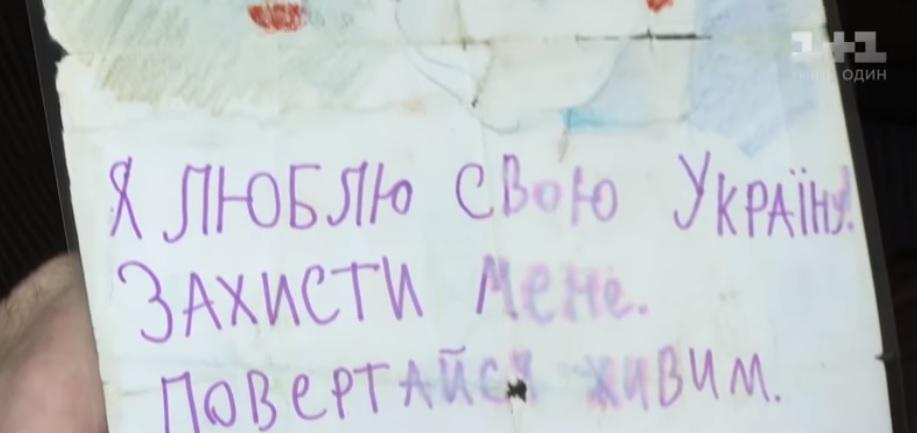 1+1
ОДИН
Я ЛЮБЛЮ СВОЮ УКРАЇНУ!
ЗАХИСТИ МЕНЕ.
ПОВЕРТАЙСЯ ЖИВИМ.